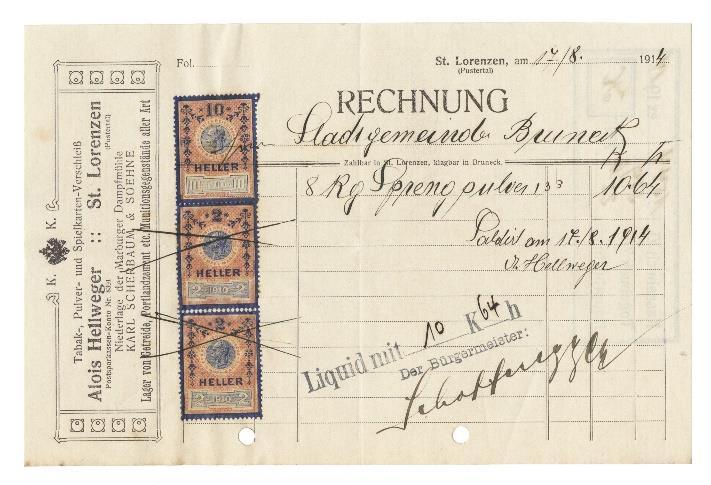 K. K.
Tabak-, Pulver- und Spielkarten-Verschleiß
Alois Hellweger :: St. Lorenzen
(Pustertal)
Niederlage der Marburger Dampfmühle
KARL SCHERBAUM & SOEHNE
Lager von Getreide, Portlandzement etc. Munitionsgegenstände aller Art
Fol.
St. Lorenzen, am 17/8. 1914
(Pustertal)
RECHNUNG
Stadtgemeinde Bruneck
Zahlbar in St. Lorenzen, klagbar in Bruneck.
K h
8 Kg Sprengpulver 133 10·64
Saldirt am 17./8. 1914
A. Hellweger
Liquid mit 10 K 64 h
Der Bürgermeister:
10
HELLER
10 10
2
HELLER
2 1910 2
2
HELLER
2 1910 2